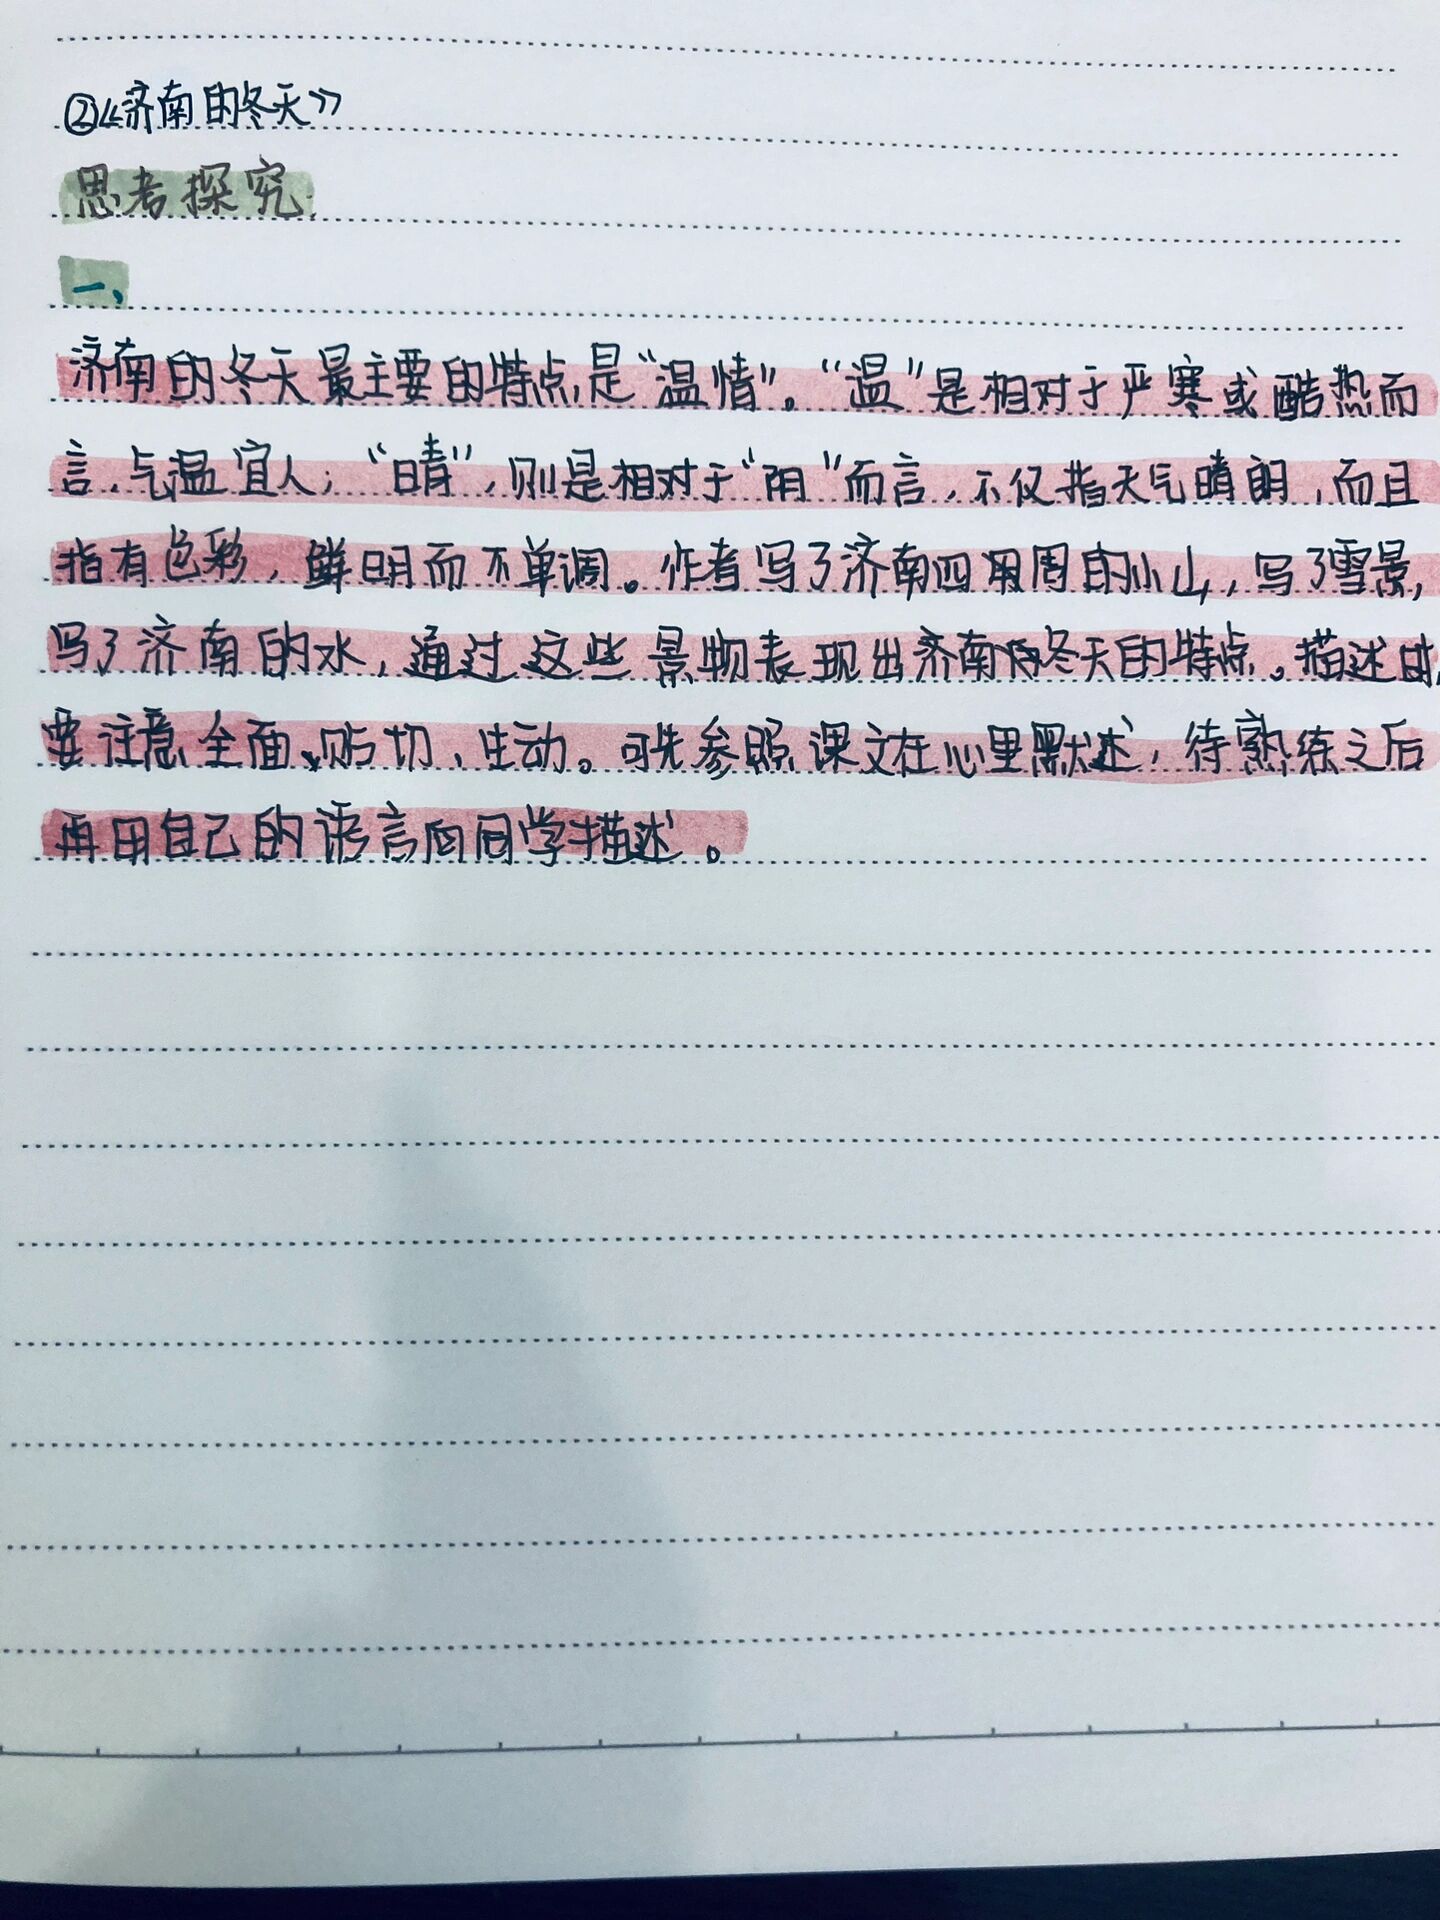 ②《济南的冬天》
思考探究:
一、
济南的冬天最主要的特点是“温情”。“温”是相对于严寒或酷热而
言,气温宜人；“晴”,则是相对于“阴”而言,不仅指天气晴朗,而且
指有色彩,鲜明而不单调。作者写了济南四周的小山,写了雪景,
写了济南的水,通过这些景物表现出济南的冬天的特点。描述时,
要注意全面、贴切、生动。可先参照课文在心里默述,待熟练之后
再用自己的语言向同学描述。